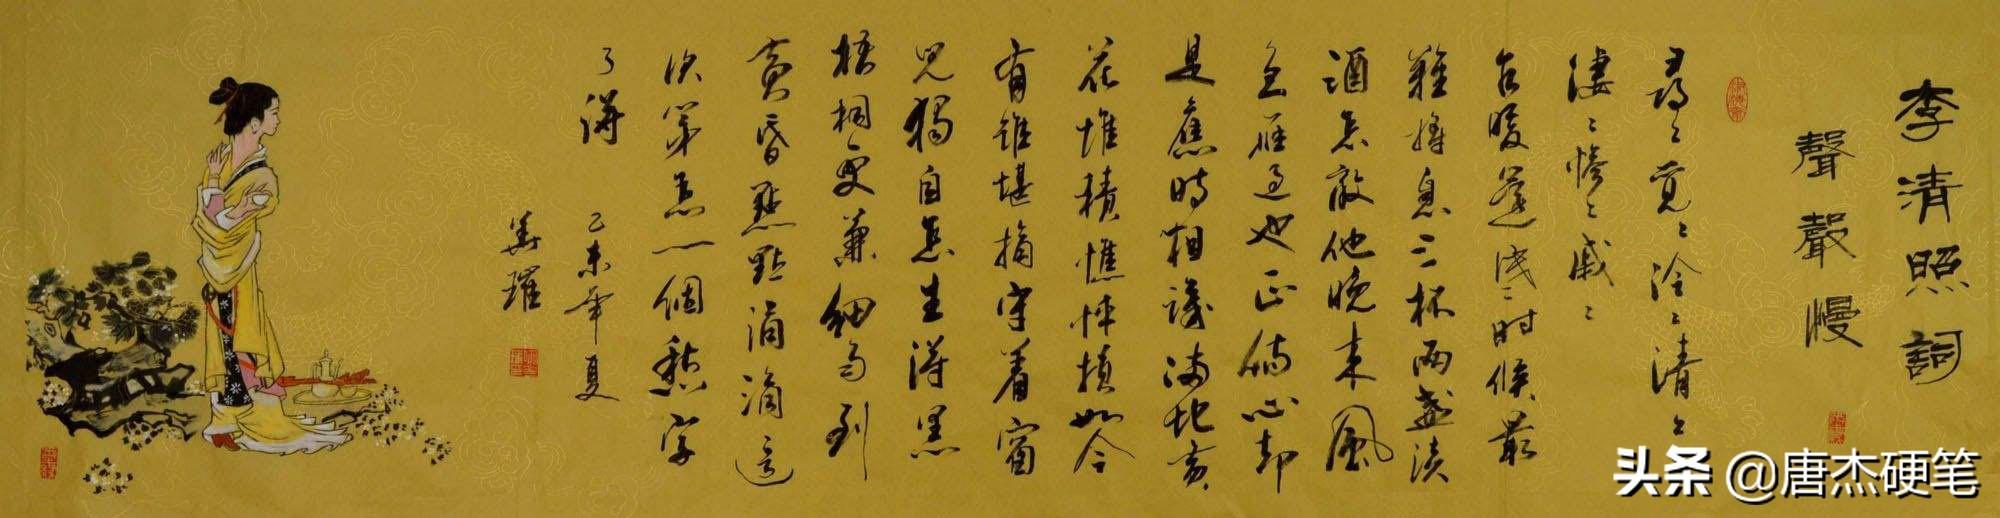 李清照詞
聲聲慢
尋〻覓〻冷〻清〻
淒〻慘〻戚〻
乍暖還时候最
難將息三杯兩盞淡
酒怎敵他晚来風
急雁過也正傷心却
是舊時相識满地黄
花堆積憔悴損如今
有誰堪摘守着窗
兒獨自怎生得黑
梧桐更兼細雨到
黄昏點點滴滴這
次第怎一個愁字
了得 乙未年夏
头条 @唐杰硬笔